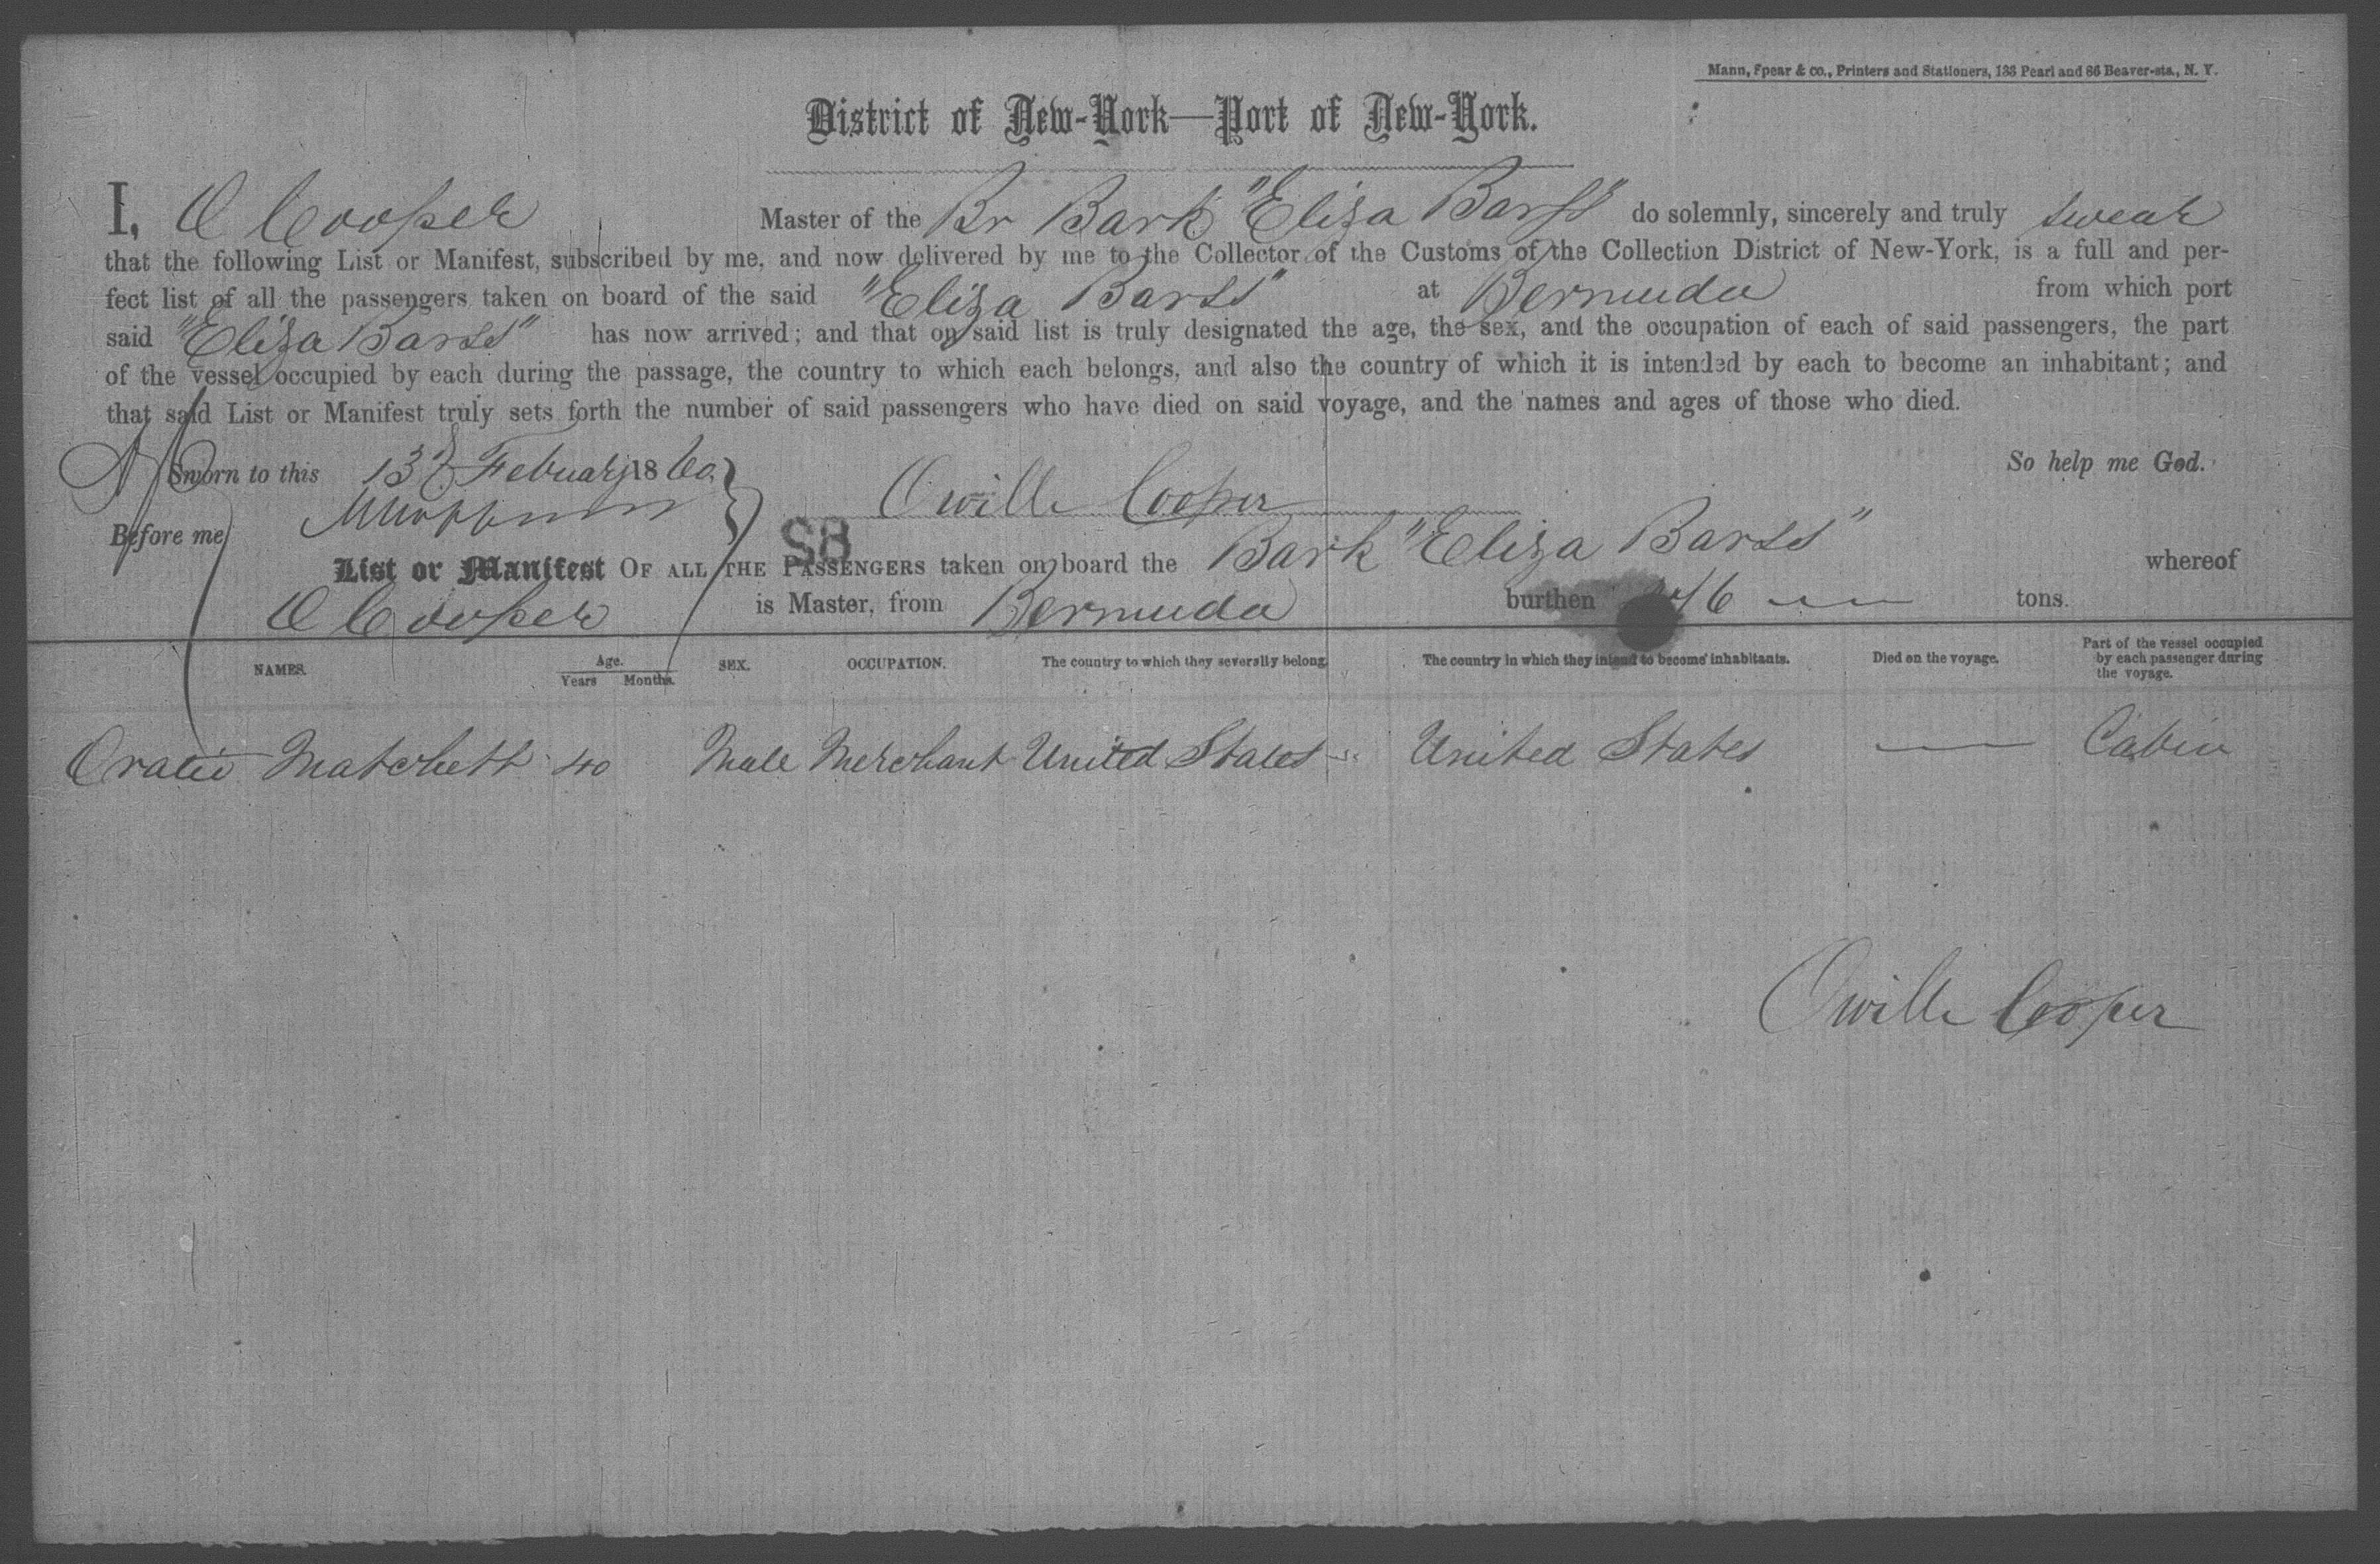 Mann, Spear & co., Printers and Stationers, 133 Pearl and 86 Beaver-sts., N. Y.
District of New-York—Port of New-York.
I, O Cooper Master of the Br Bark "Eliza Barss" do solemnly, sincerely and truly swear
that the following List or Manifest, subscribed by me, and now delivered by me to the Collector of the Customs of the Collection District of New-York, is a full and per-
fect list of all the passengers taken on board of the said "Eliza Barss" at Bermuda from which port
said "Eliza Barss" has now arrived; and that on said list is truly designated the age, the sex, and the occupation of each of said passengers, the part
of the vessel occupied by each during the passage, the country to which each belongs, and also the country of which it is intended by each to become an inhabitant; and
that said List or Manifest truly sets forth the number of said passengers who have died on said voyage, and the names and ages of those who died.
Sworn to this 13 Febuary 1860 So help me God.
Orville Cooper
Before me
58
List or Manifest OF ALL THE PASSENGERS taken on board the Bark "Eliza Barss" whereof
O Cooper is Master, from Bermuda burthen tons.
NAMES. Age. Years Months. SEX. OCCUPATION. The country to which they severally belong. The country in which they intend to become inhabitants. Died on the voyage. Part of the vessel occupied by each passenger during the voyage.
Oratio Matchett 40 Male Merchant United States United States — Cabin
Orville Cooper